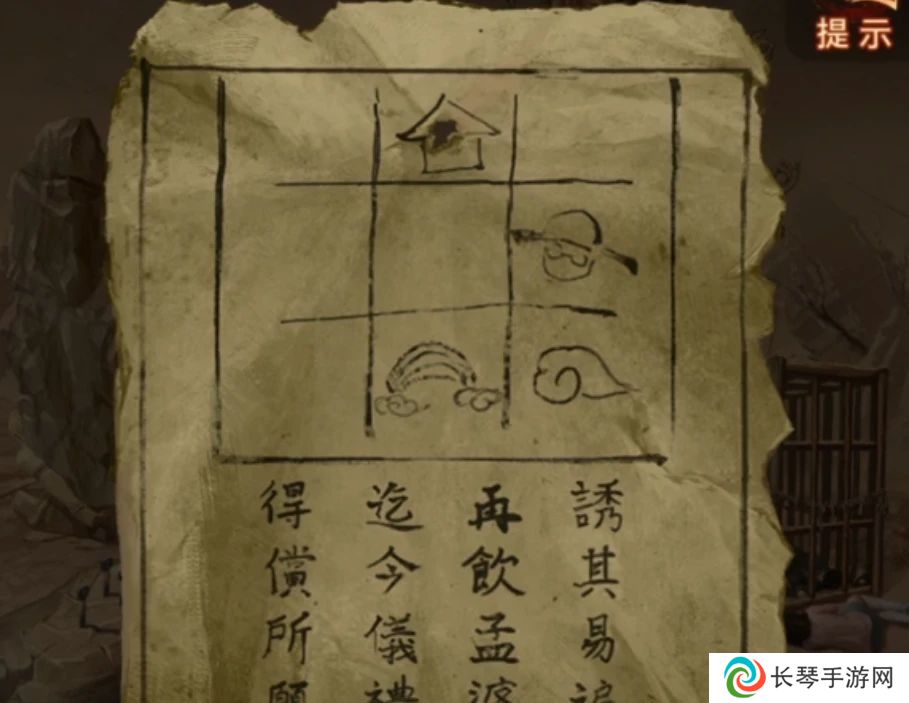 提示
誘其易
再飲孟婆
迄今儀禮
得償所願
长琴手游网